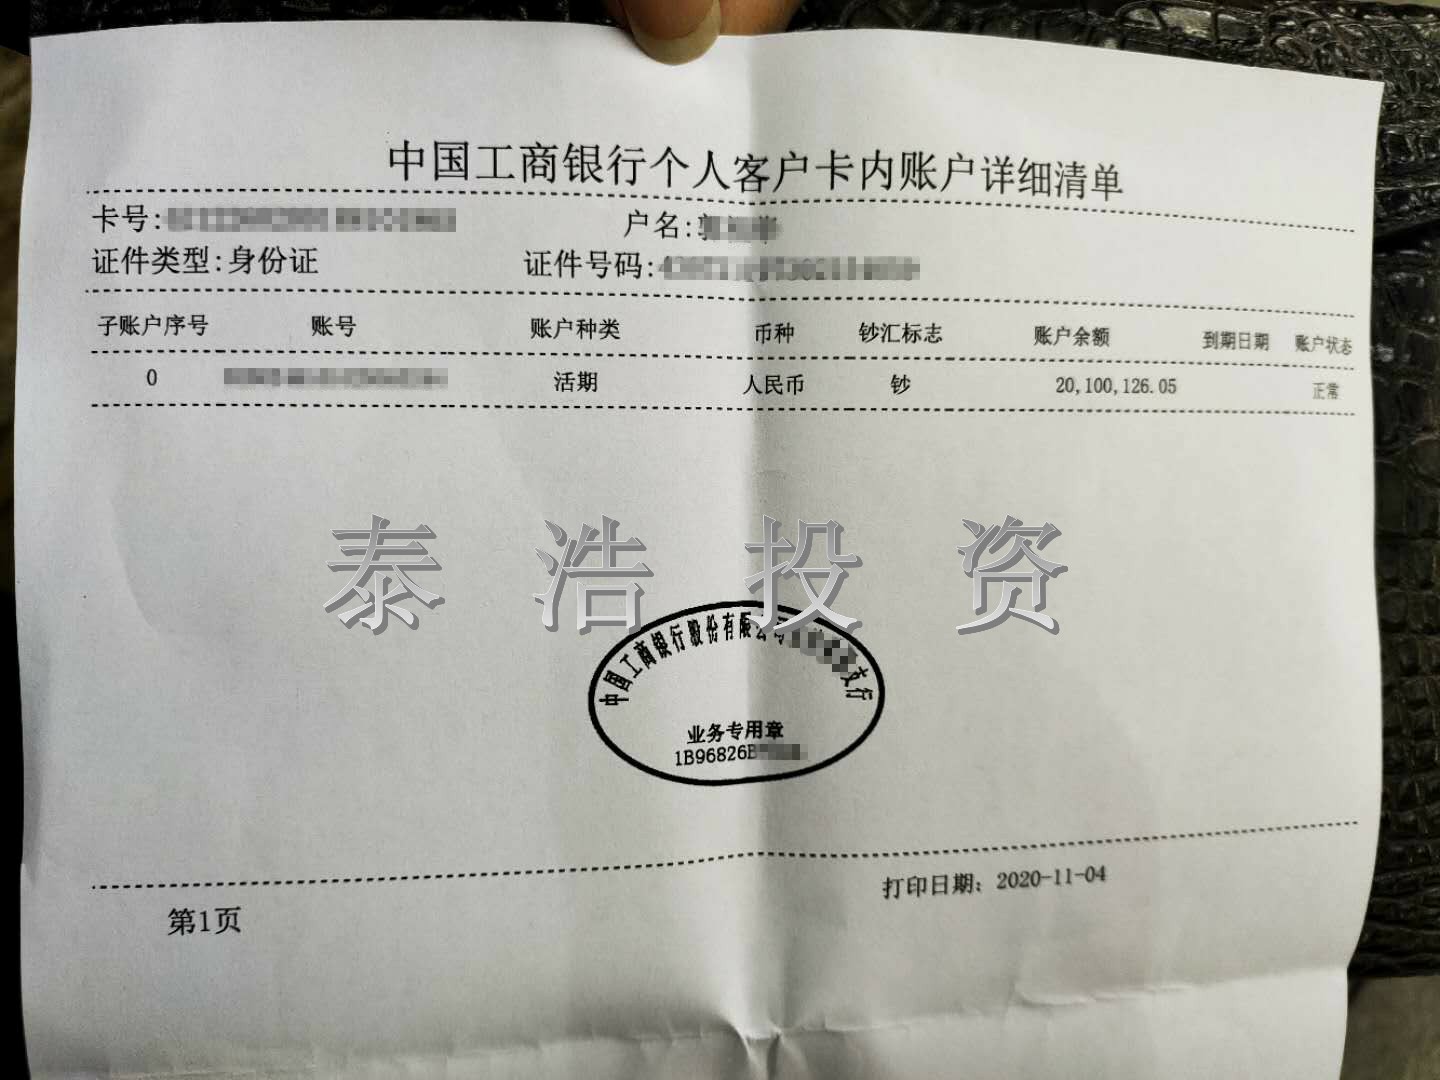 中国工商银行个人客户卡内账户详细清单
卡号: 户名:
证件类型:身份证 证件号码:
子账户序号 账号 账户种类 币种 钞汇标志 账户余额 到期日期 账户状态
0 活期 人民币 钞 20,100,126.05 正常
泰浩投资
中国工商银行股份有限公司 支行
业务专用章
1B96826B
打印日期: 2020-11-04
第1页